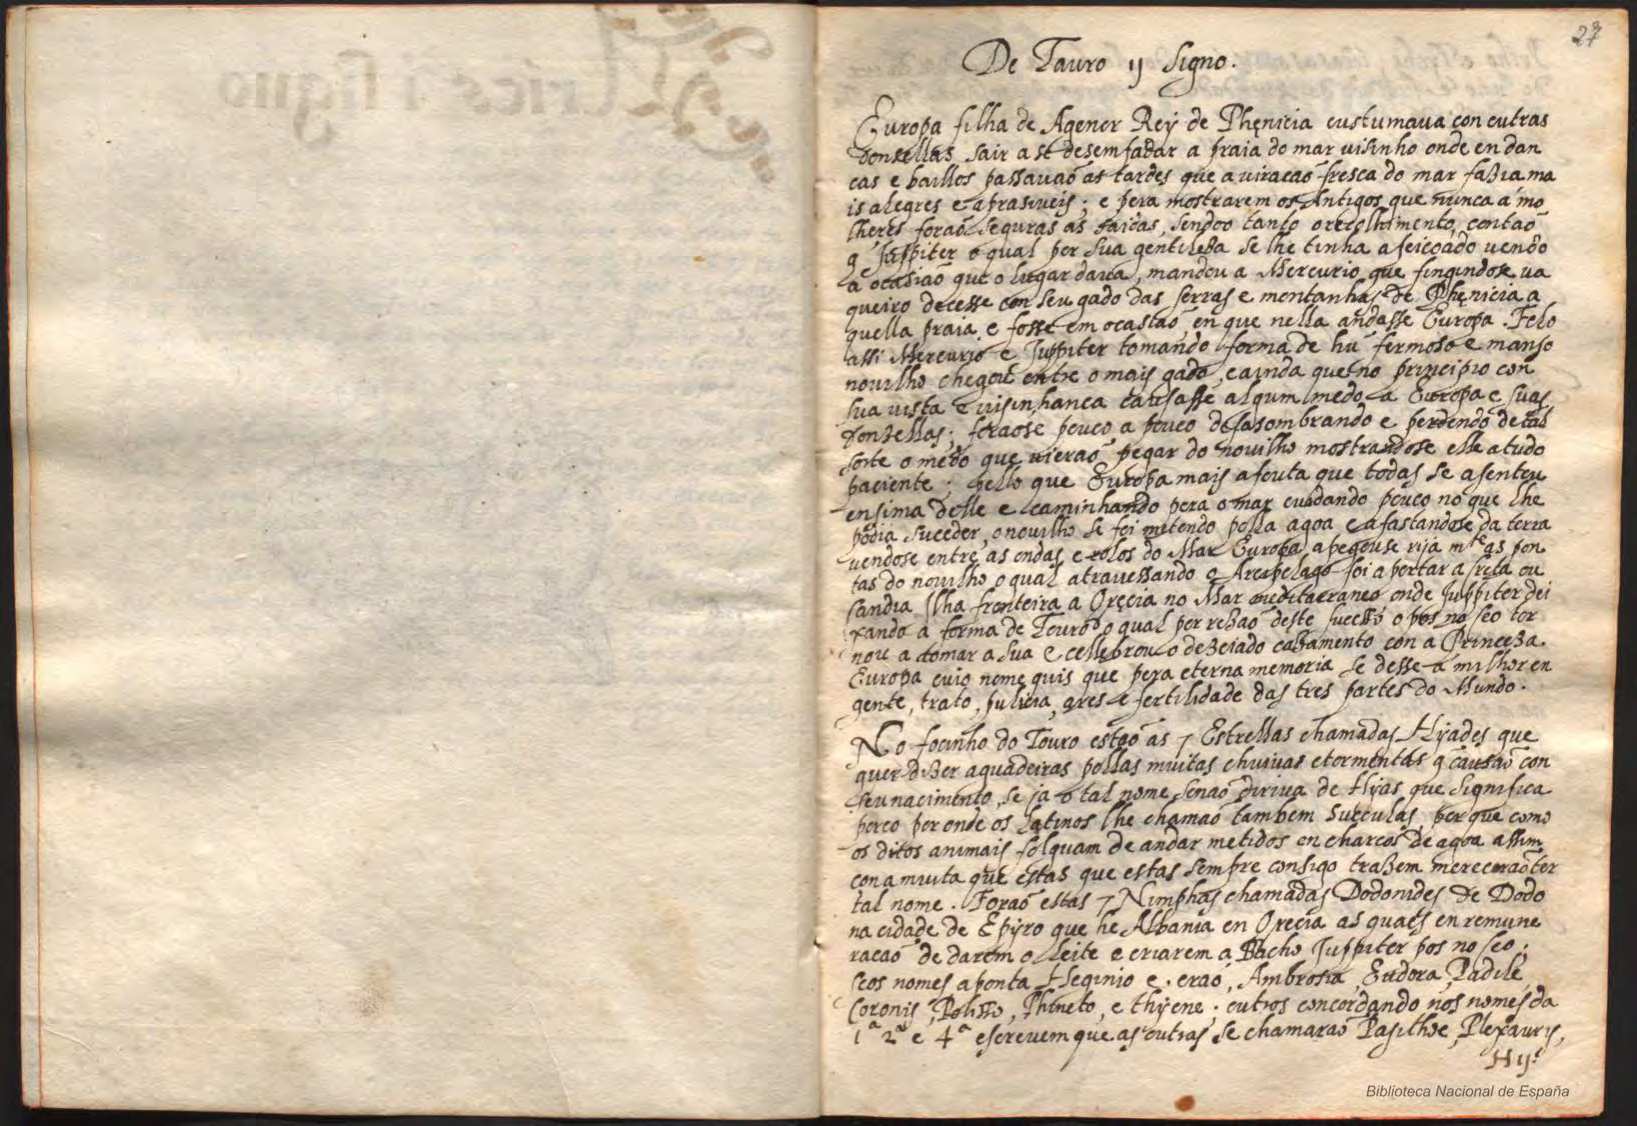 27
De Tauro ij Signo.
Europa filha de Agenor Rey de Phęnicia custumaua con outras
donzellas sair a se desemfadar a praia do mar uisinho onde en dan
cas e baillos passauaõ as tardes que a uiracaõ fresca do mar fazia ma
is alegres e aprasiueis; e pera mostrarem os Antigos que nunca á mo
lheres foraõ seguras as saidas, sendo tanto o recolhimento, contaõ
q̃ Juppiter o qual por sua gentileza se lhe tinha afeicoado uendo
a ocasiaõ que o lugar daua, mandou a Mercurio que fingindose ua
queiro decesse con seu gado das serras e montanhas de Phęnicia a
quella praia e fosse em ocasiaõ en que nella andasse Europa. Felo
assi Mercurio e Juppiter tomando forma de hũ fermoso e manso
nouilho chegou entre o mais gado, e ainda que no principio con
sua uista e uisinhanca causasse algum medo a Europa e suas
donzellas; foraose pouco a pouco desasombrando e perdendo de tal
sorte o medo que uieraõ pegar do nouilho mostrandose elle a tudo
paciente; pello que Europa mais afouta que todas se asentou
ensima delle e caminhando pera o mar cuidando pouco no que lhe
podia suceder, o nouilho se foi metendo polla agoa e afastandose da terra
uendose entre as ondas e rolos do Mar Europa apegouse rija mte as pon
tas do nouilho o qual atrauessando o Arcipelago foi aportar a Creta ou
Candia Ilha fronteira a Gręcia no Mar mediterraneo onde Juppiter dei
xando a forma de Touro o qual por rezaõ deste sucesso o pos no seo tor
nou a tomar a sua e cellebrou o dezeiado cazamento con a Princeza.
Europa cuio nome quis que pera eterna memoria se desse á milhor en
gente, trato, pulicia, ares e fertilidade das tres partes do Mundo.
No focinho do Touro estaõ as 7 Estrellas chamadas Hyades que
quer dizer aguadeiras pollas muitas chuiuas e tormentas q̃ causaõ con
seu nacimento, se ja o tal nome senaõ diriua de Hyas que significa
porco por onde os Latinos lhe chamaõ tambem Succulas, porque como
os ditos animais folguam de andar metidos en charcos de agoa assim
con a muita que estas que estas sempre consigo trazem mereceraõ ter
tal nome. Foraõ estas 7 Nimphas chamadas Dodonides de Dodo
na cidade de Epyro que he Albania en Grecia as quaes en remune
racaõ de darem o leite e criarem a Bacho Juppiter pos no seo;
seos nomes aponta Heginio e. eraõ, Ambrosia, Eudora, Padile,
Coronis, Polisso, Phineto, e thyene; outros concordando nos nomes da
1ª 2ª e 4ª escreuem que as outras se chamaraõ Pasithoe, Plexauris,
Biblioteca Nacional de España